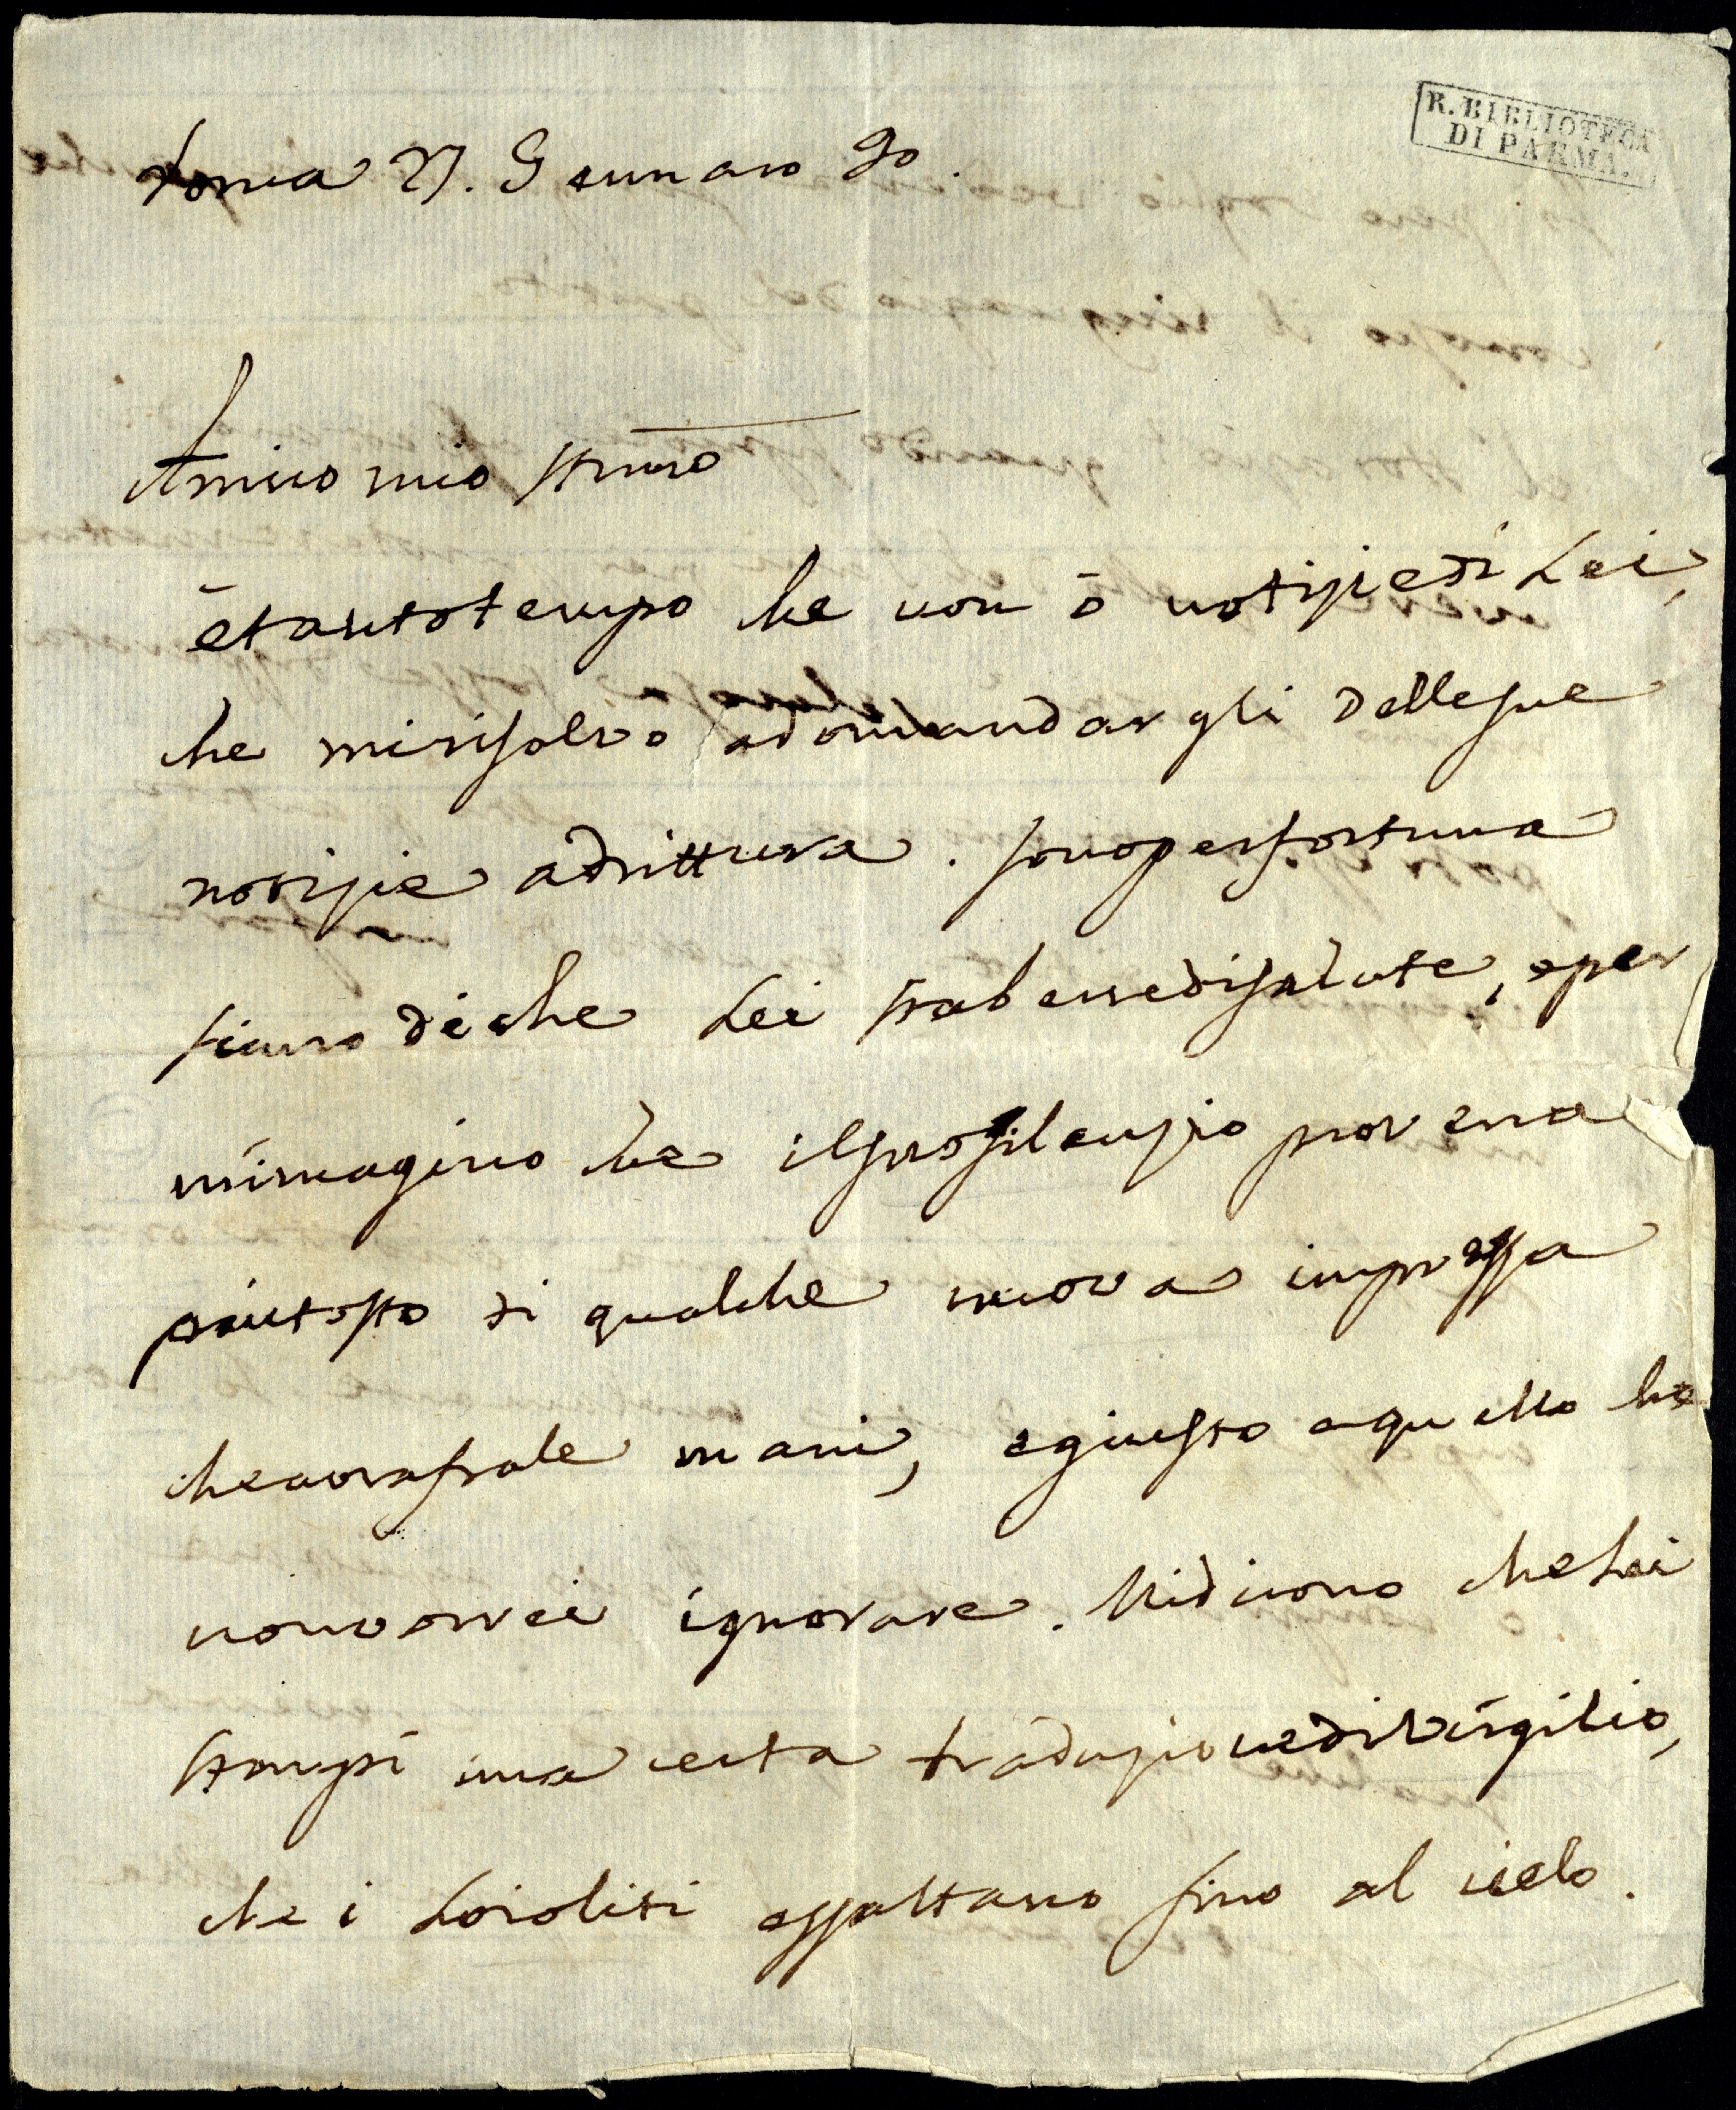 R. BIBLIOTECA
DI PARMA.
Roma 27. Gennaro 90.
Amico mio stimo
è tanto tempo che non ò notizie di Lei,
che mi risolvo a domandargli delle sue
notizie adrittura. sono per fortuna
sicuro di che Lei sta bene di salute, e per
m'imagino che il suo silenzio provenà
piutosto di qualche nuova impressa
che avrà fra le mani, e giusto a quello che
non vorrei ignorare. Mi dicono che Lei
stampi una certa traduzione di Virgilio,
che i Loioliti essaltano fino al cielo.